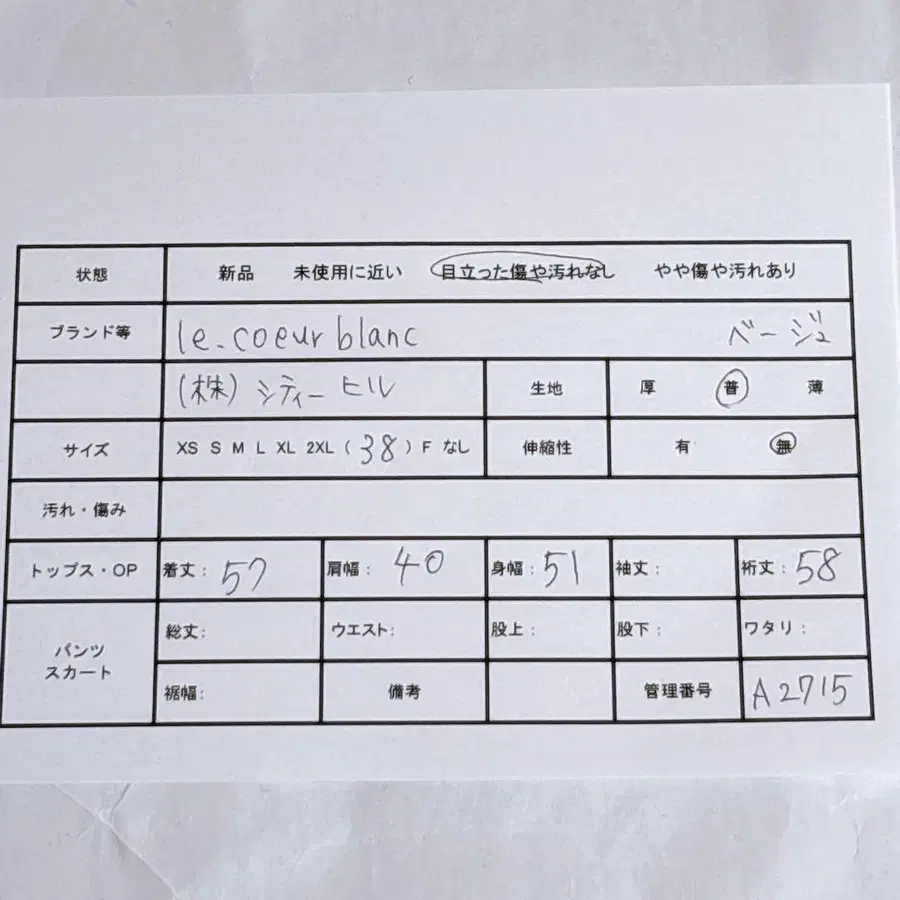 状態 新品 未使用に近い 目立った傷や汚れなし やや傷や汚れあり
ブランド等 le.coeur blanc ベージュ
(株)シティーヒル 生地 厚 普 薄
サイズ XS S M L XL 2XL (38) F なし 伸縮性 有 無
汚れ・傷み
トップス・OP 着丈: 57 肩幅: 40 身幅: 51 袖丈: 裄丈: 58
パンツ スカート 総丈: ウエスト: 股上: 股下: ワタリ:
裾幅: 備考 管理番号 A2715